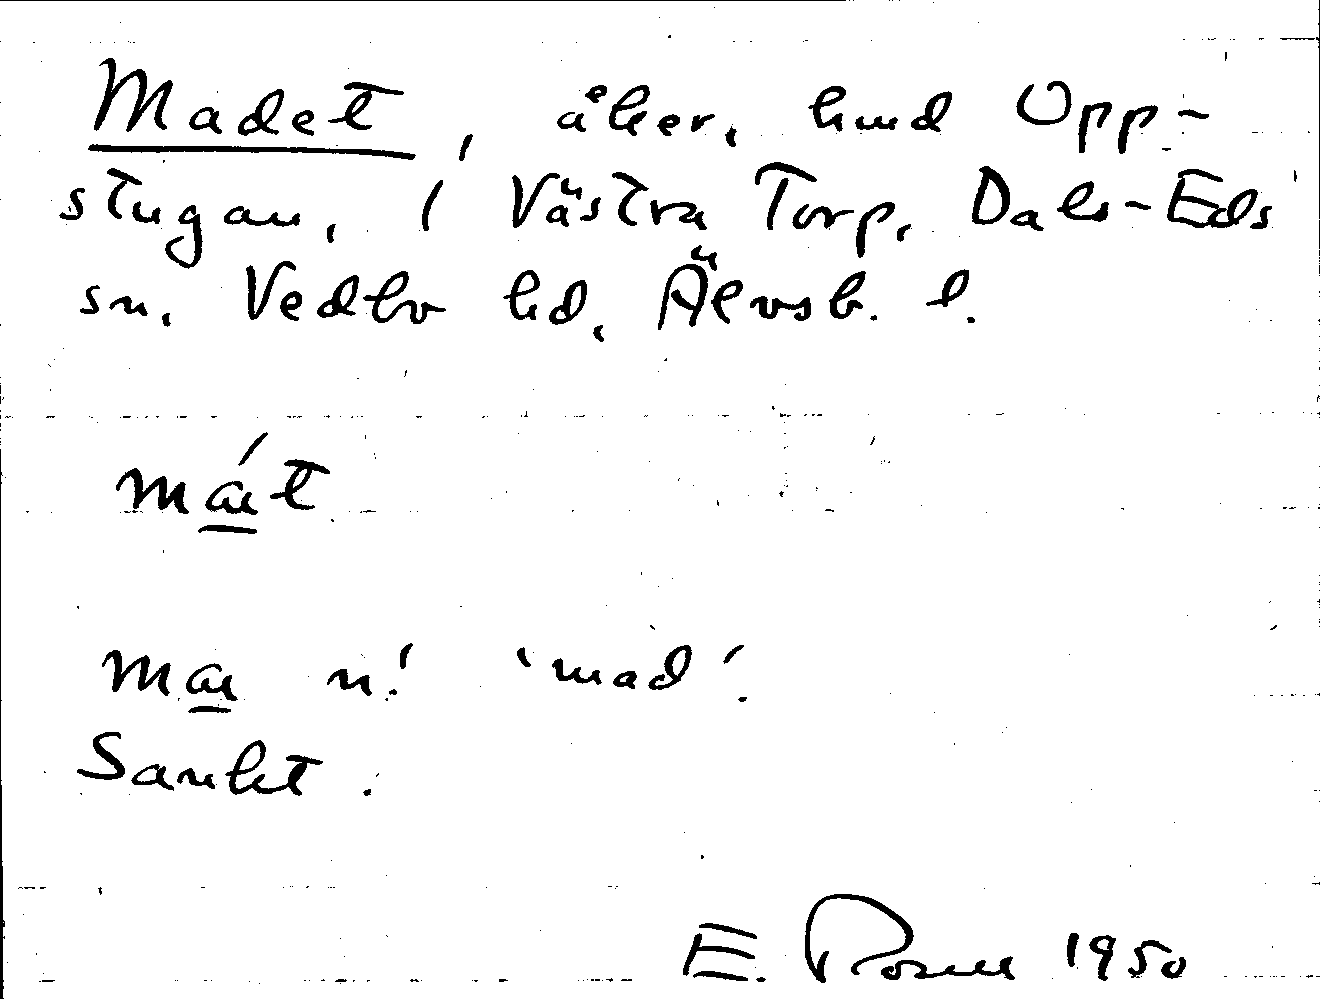 Madet, åker, hmd Opp-
stugan, i Västra Torp, Dals-Eds
sn, Vedbo hd, Älvsb. l.
má̱t
ma̱ n! 'mad'.
Sankt.
E. Rosell 1950